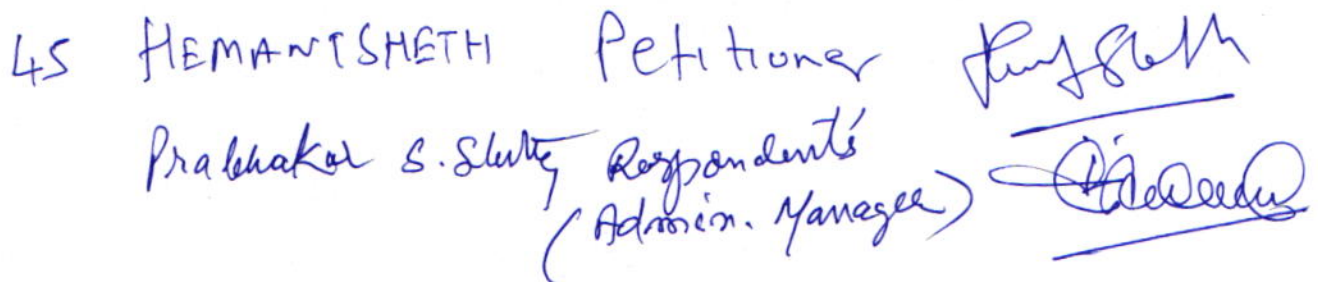 45 HEMANT SHETH Petitioner
Prabhakar S. Shetty Respondents
(Admin. Manager)